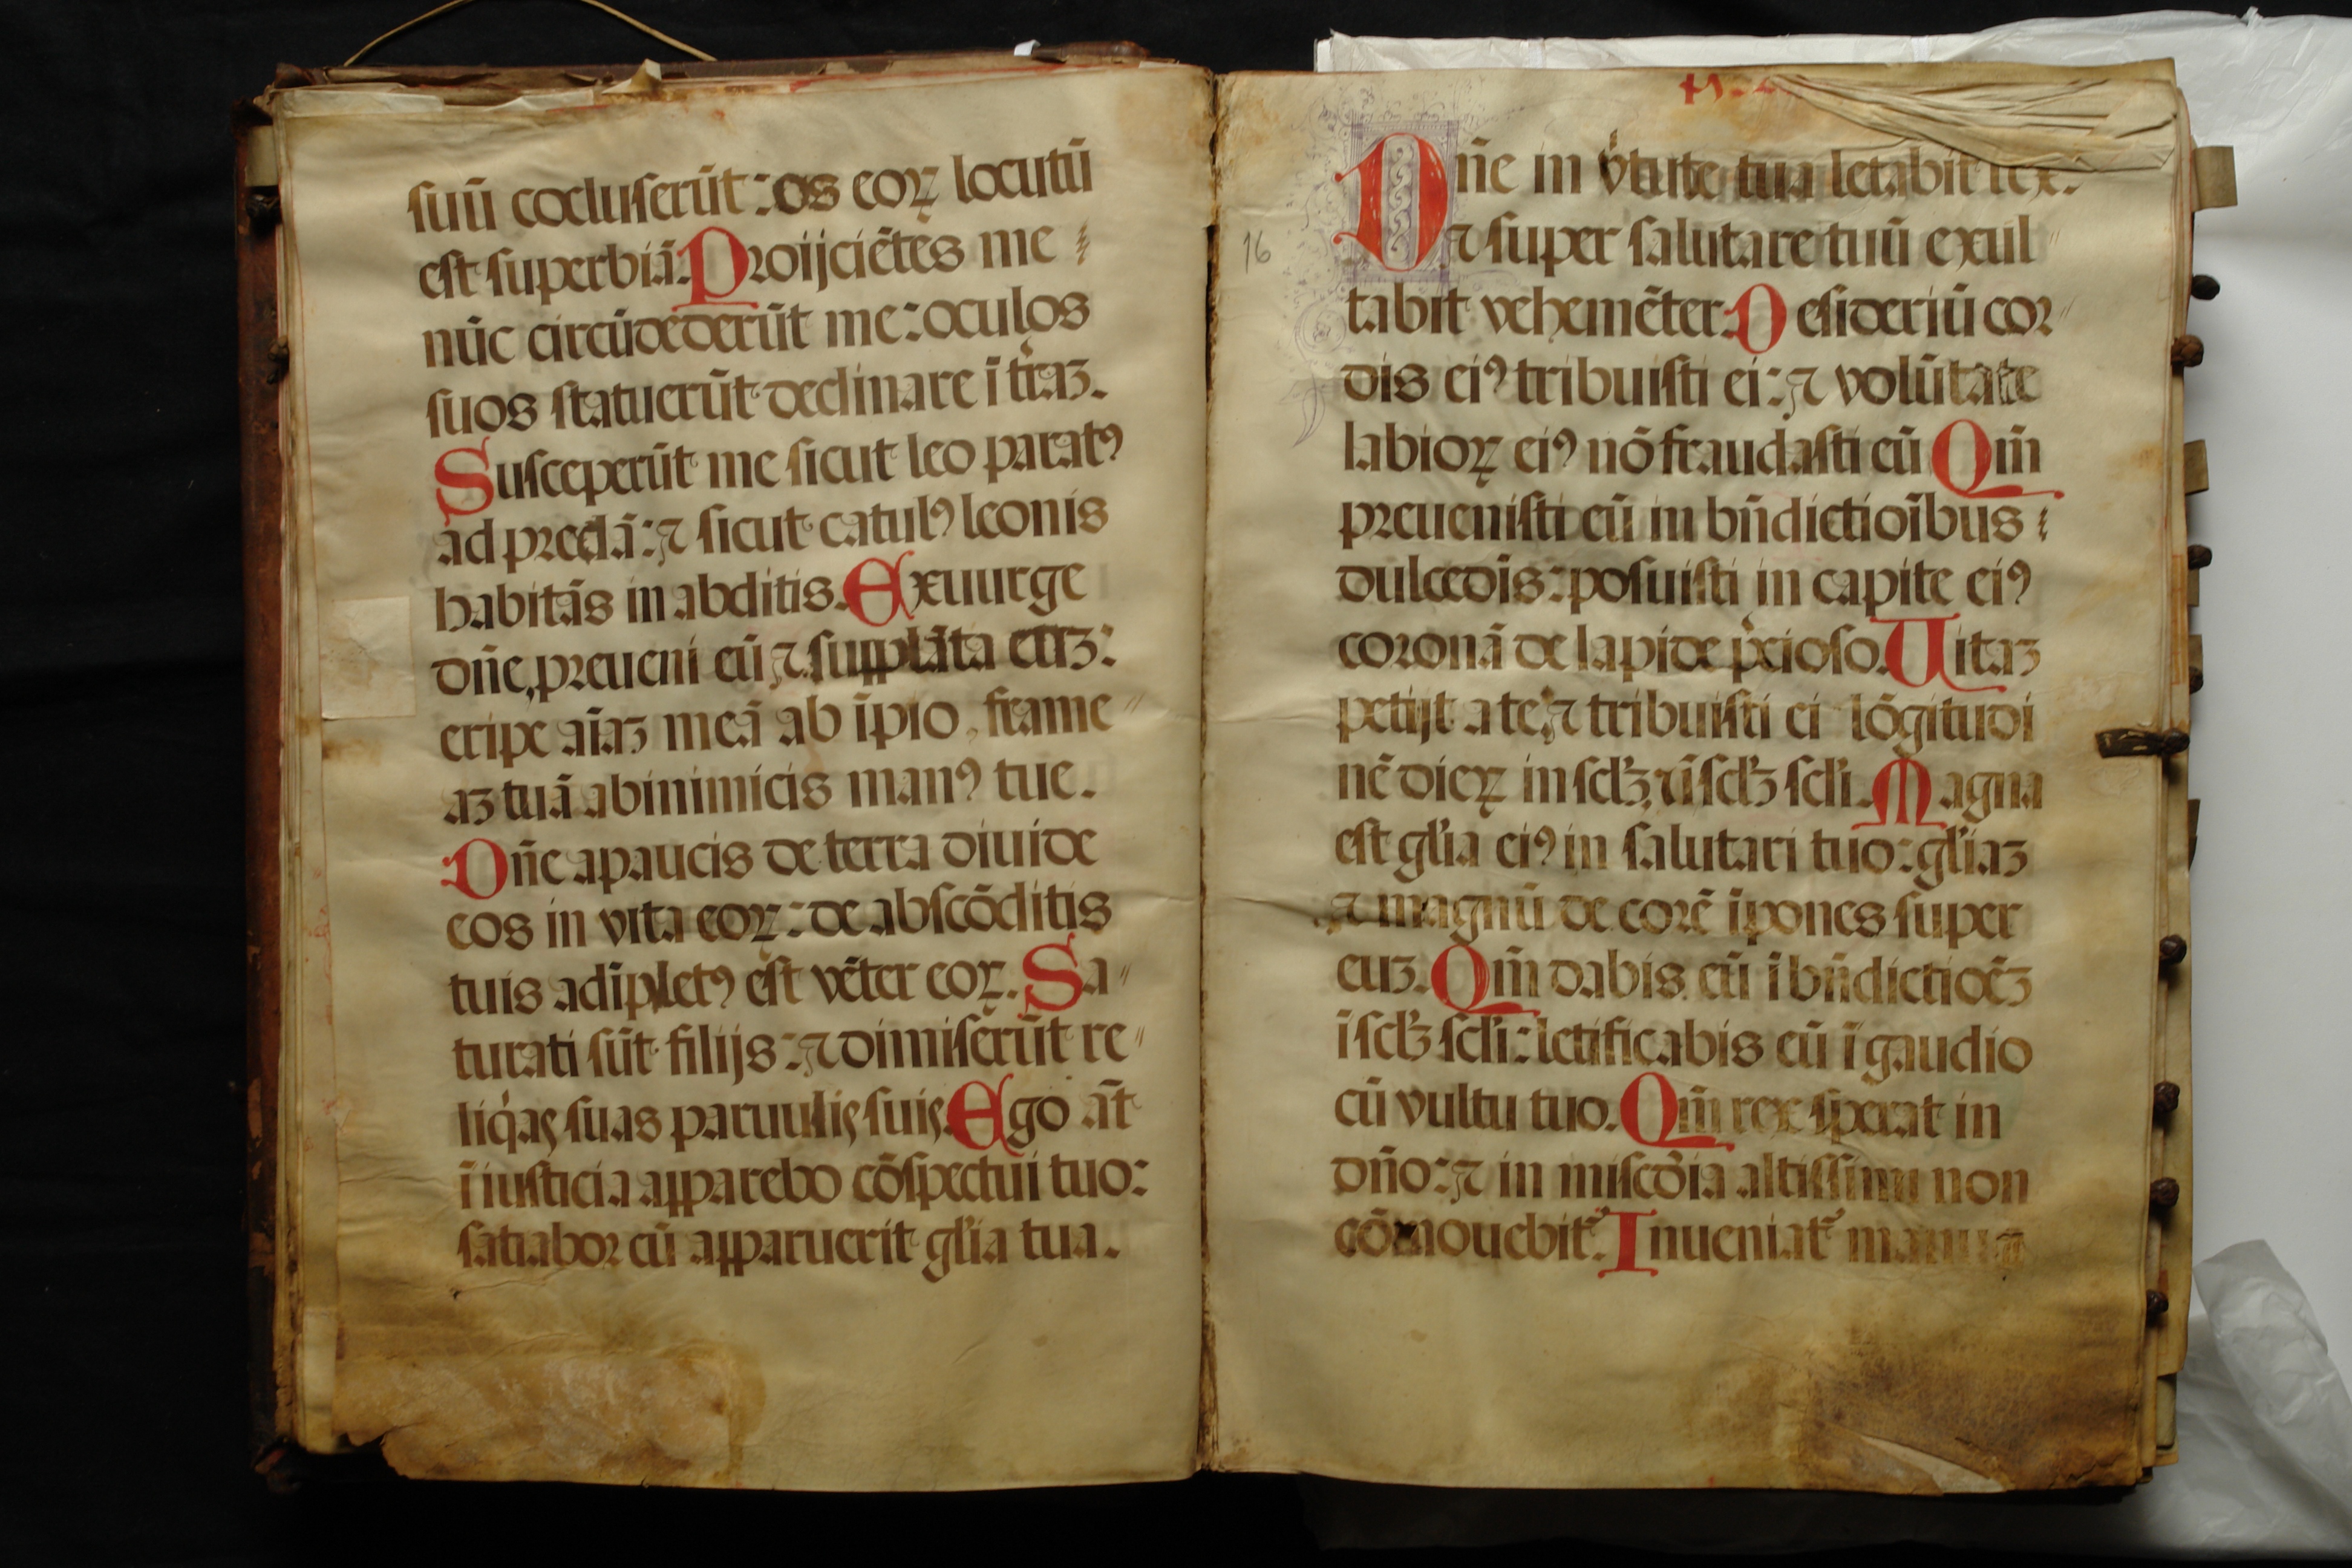 suū cōcluserūt: os eoꝝ locutū
est superbiā. Proijciētes me
nūc circūdederūt me: oculos
suos statuerūt declinare ī t̃raꝫ.
Susceperūt me sicut leo paratꝰ
ad predā: ⁊ sicut catulꝰ leonis
habitās in abditis. Exuurge
dn̄e, preueni eū ⁊ supplāta euꝫ:
eripe aīaꝫ meā ab īpio, frame
aꝫ tuā ab inimicis manꝰ tue.
Dn̄e a paucis de terra diuide
eos in vita eoꝝ: de abscōditis
tuis adīpletꝰ est vēter eoꝝ. Sa
turati sūt filijs: ⁊ dimiserūt re
liqͥas suas paruulis suis. Ego āt
ī iusticia apparebo cōspectui tuo:
satiabor cū apparuerit gl̓ia tua.
16
Dn̄e in v̓tute tua letabit rex.
⁊ super salutare tuū exul
tabit vehemēter. Desideriū cor
dis eiꝰ tribuisti ei: ⁊ volūtate
labioꝝ eiꝰ nō fraudasti eū Qm̄
preuenisti eū in bn̄dictioībus
dulcedīs: posuisti in capite eiꝰ
coronā de lapide p̓cioso. Uitaꝫ
petijt a te, ⁊ tribuisti ei lōgitudi
nē dieꝝ in scl̓ꝫ, ⁊ ī scl̓ꝫ scl̓i. Magna
est gl̓ia eiꝰ in salutari tuo: gl̓iaꝫ
⁊ magnū decorē īpones super
euꝫ. Qm̄ dabis eū ī bn̄dictioēꝫ
ī scl̓ꝫ scl̓i: letificabis eū ī gaudio
cū vultu tuo. Qm̄ rex sperat in
dn̄o: ⁊ in miscd̓ia altissimi non
cōmouebit᷑. Inueniat᷑ manus